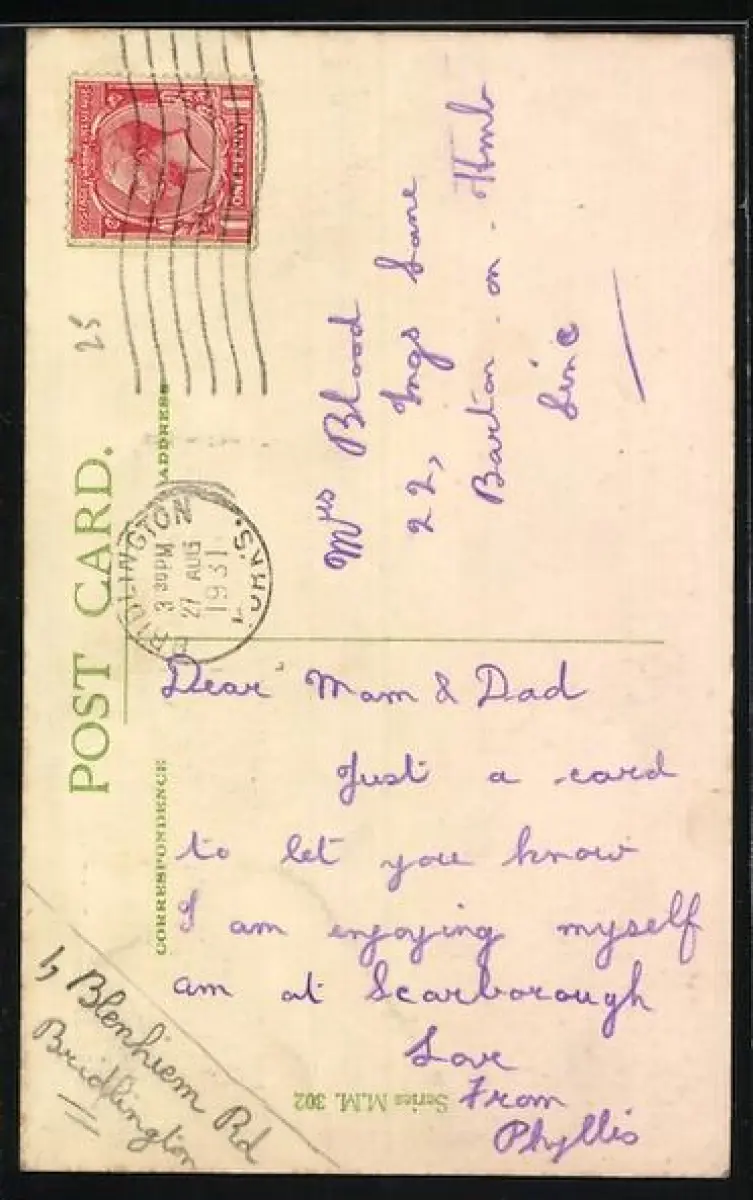 POST CARD.
CORRESPONDENCE
ADDRESS
ONE PENNY
25
BRIDLINGTON
3 30PM
27 AUG
1931
YORKS.
Mrs Blood
22, Ings Lane
Barton-on-Hmb
Linc
Dear Mam & Dad
Just a card
to let you know
I am enjoying myself
am at Scarborough
Love
From
Phyllis
Blenhiem Rd
Bridlington
Series M.M. 302